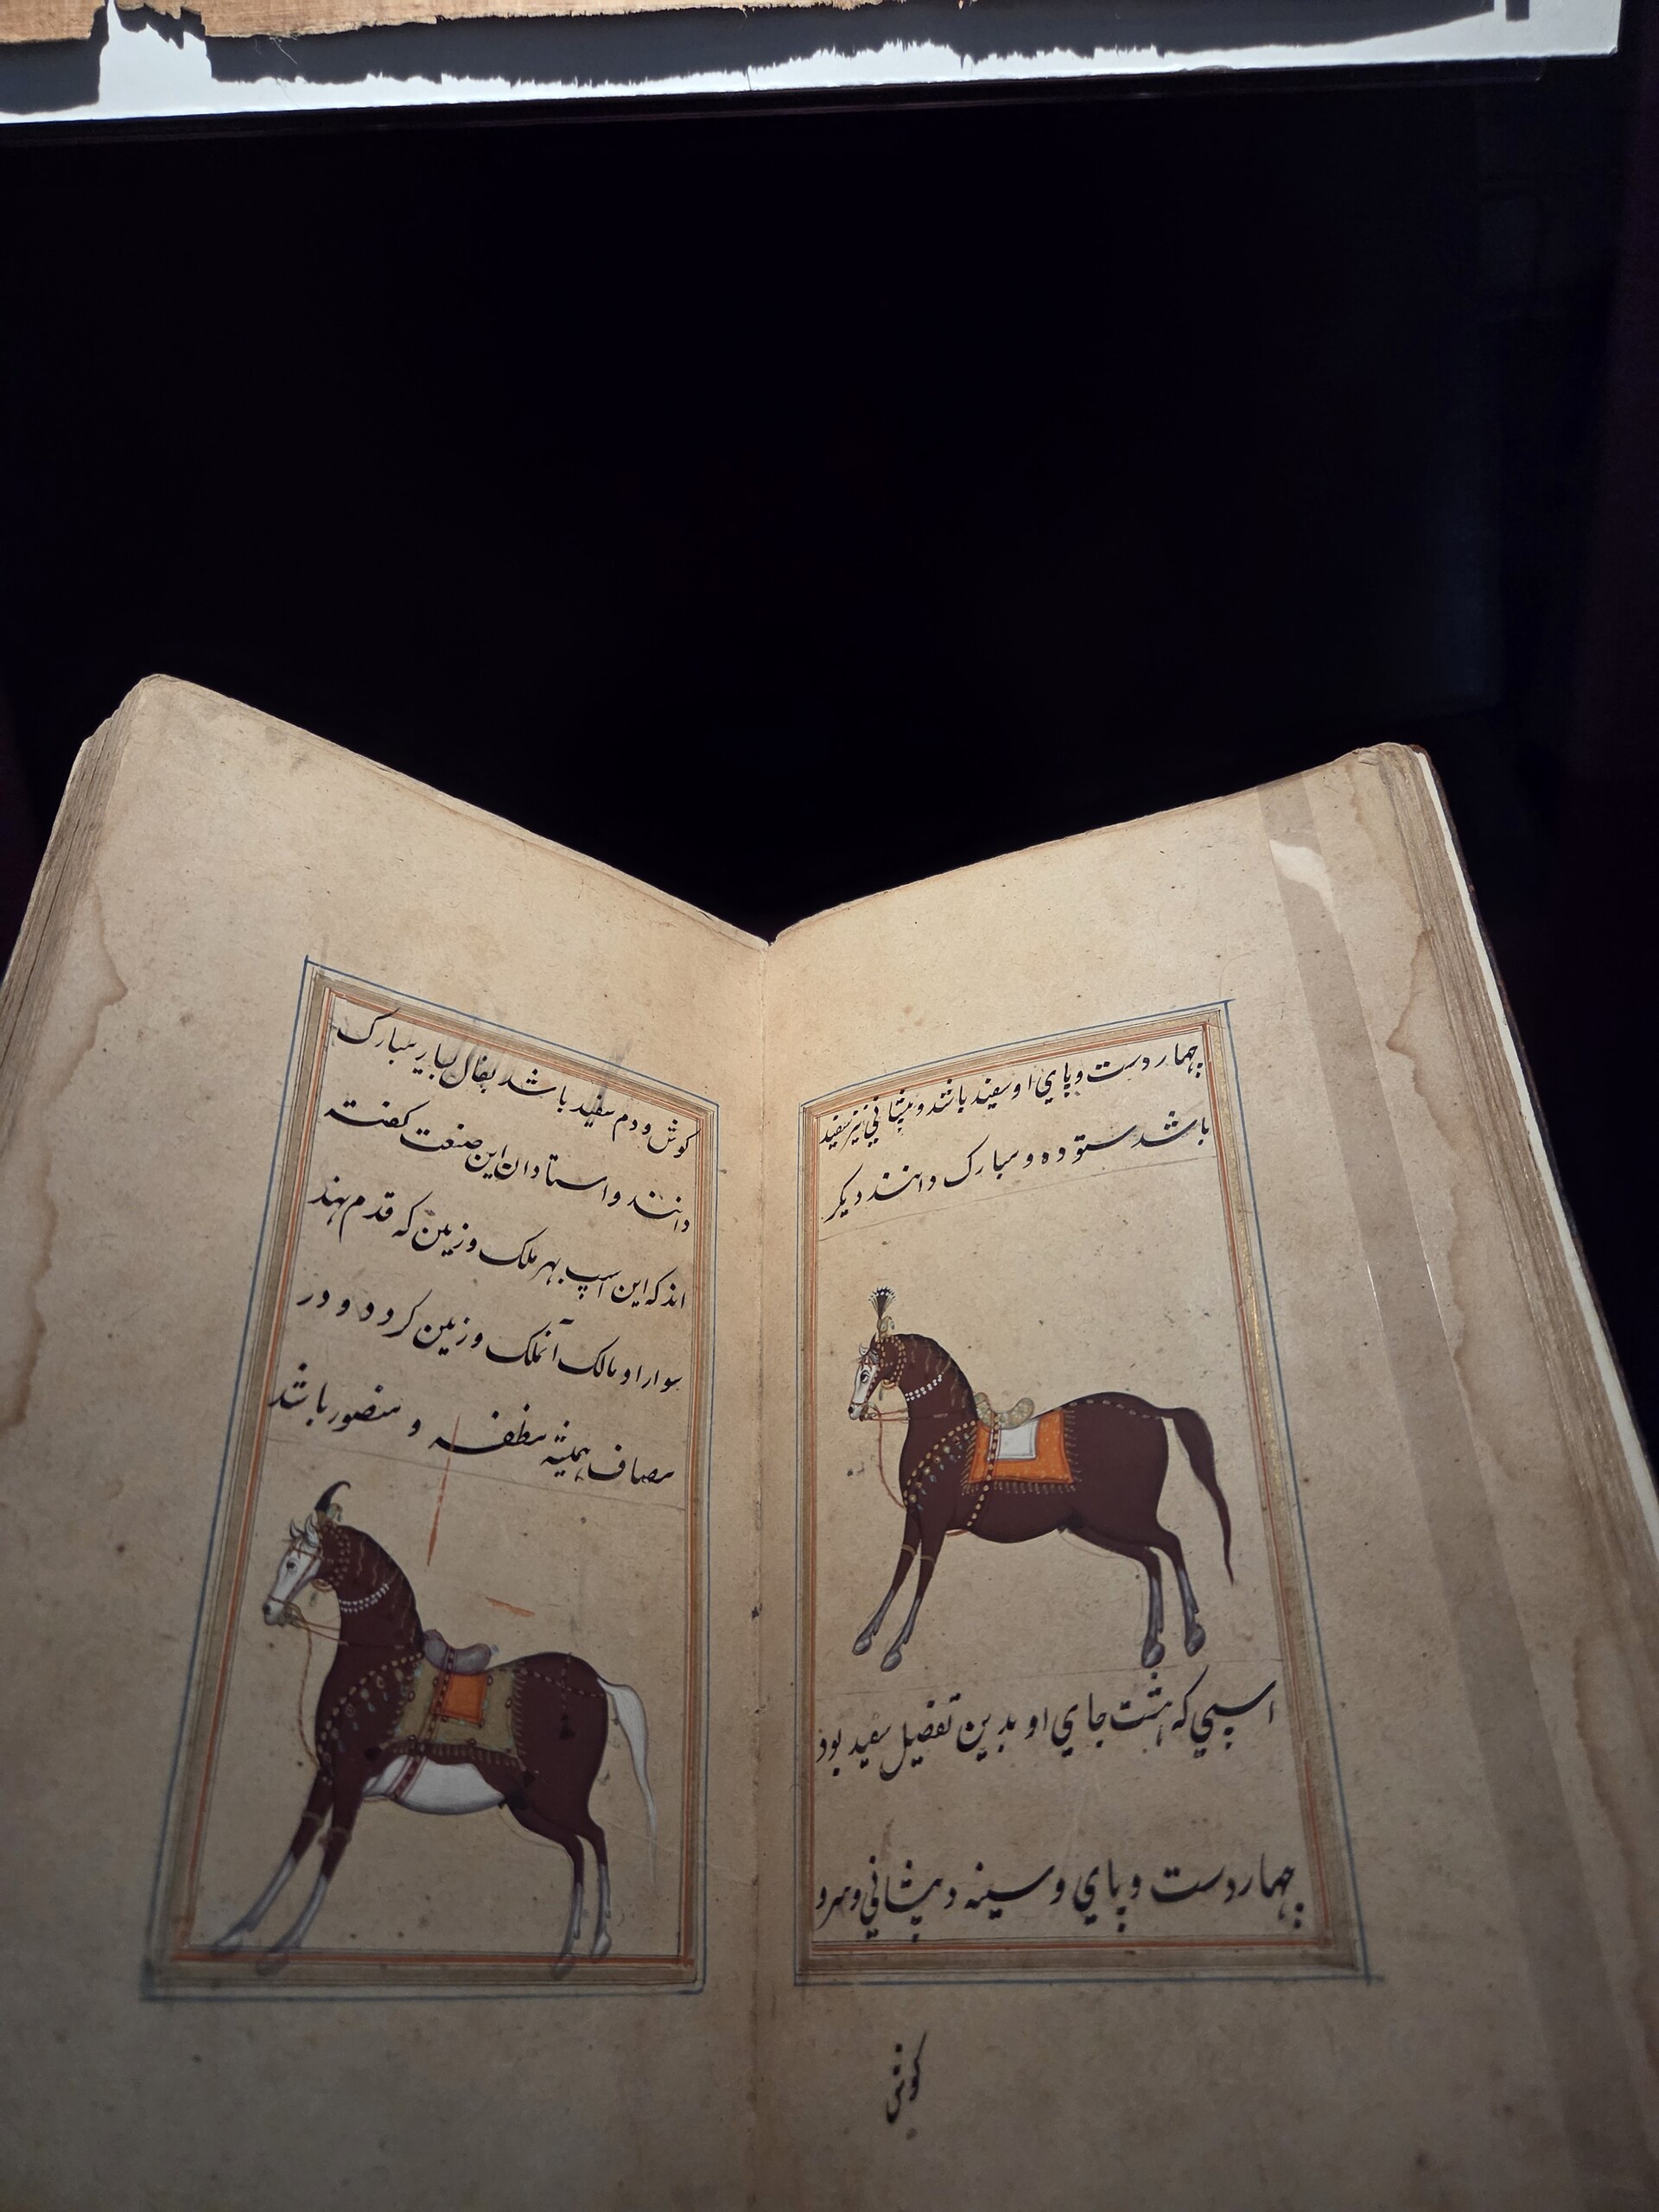 چهار دست و پاي او سفيد باشد و پيشاني نيز سفيد
باشد ستوده و مبارک دانند ديکر
اسپي که هشت جاي او بدين تفضيل سفيد بود
چهار دست و پاي و سينه و پيشاني و هر دو
کوش
کوش و دم سفيد باشد بفال بسيار مبارک
دانند و استادان اين صنعت کفته
اند که اين اسپ بهر ملک و زمين که قدم نهد
سوار او مالک آنملک و زمين کردد و در
مصاف هميشه مظفر و منصور باشد